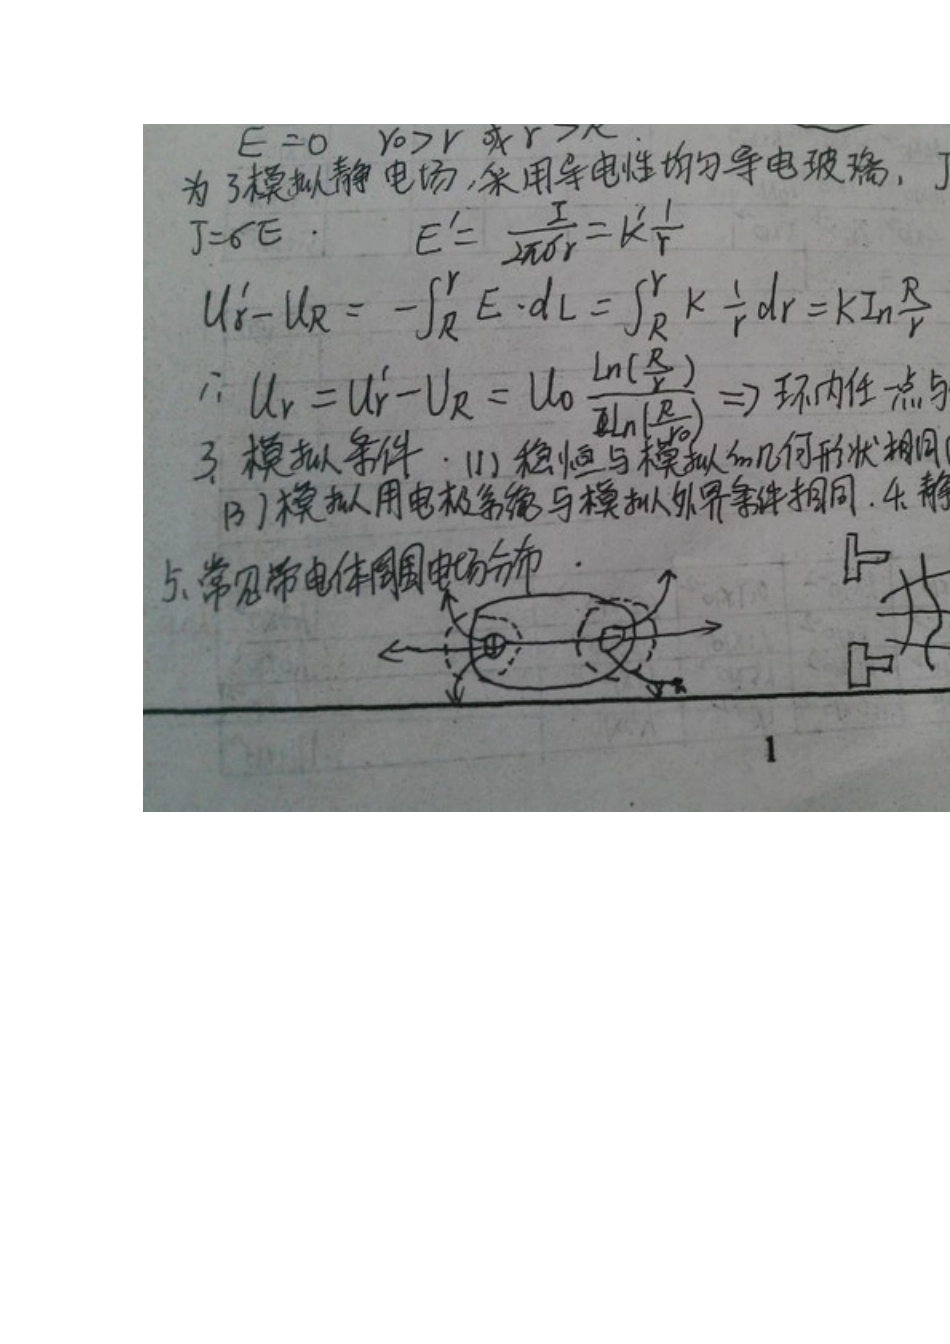 E=0 r0>r 或r>R.
为了模拟静电场,采用导电性均匀导电玻璃, J
J=σE. E'=I/2πσr=K'1/r
Ur'-UR=-∫_R^r E·dL=∫_R^r K 1/r dr=KIn R/r
∴ Ur=Ur'-UR=U0 Ln(R/r)/Ln(R/r0) => 环内任一点与
3. 模拟条件.(1)稳恒与模拟的几何形状相同(
(3)模拟用电极系统与模拟外界条件相同.4.静
5.常见带电体周围电场分布.
+
1